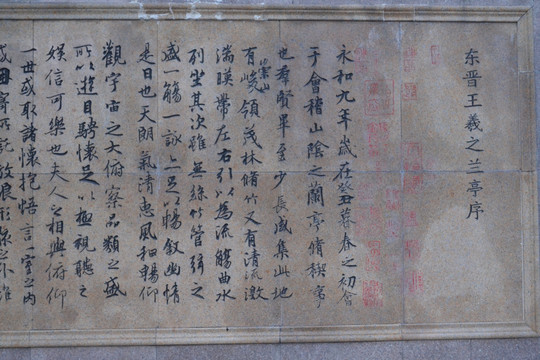 东晋王羲之兰亭序
永和九年歲在癸丑暮春之初會
于會稽山陰之蘭亭脩稧事
也羣賢畢至少長咸集此地
有崇山峻領茂林脩竹又有清流激
湍暎帶左右引以為流觴曲水
列坐其次雖無絲竹管弦之
盛一觴一詠亦足以暢敘幽情
是日也天朗氣清惠風和暢仰
觀宇宙之大俯察品類之盛
所以遊目騁懷足以極視聽之
娛信可樂也夫人之相與俯仰
一世或取諸懷抱悟言一室之內
或因寄所託放浪形骸之外雖